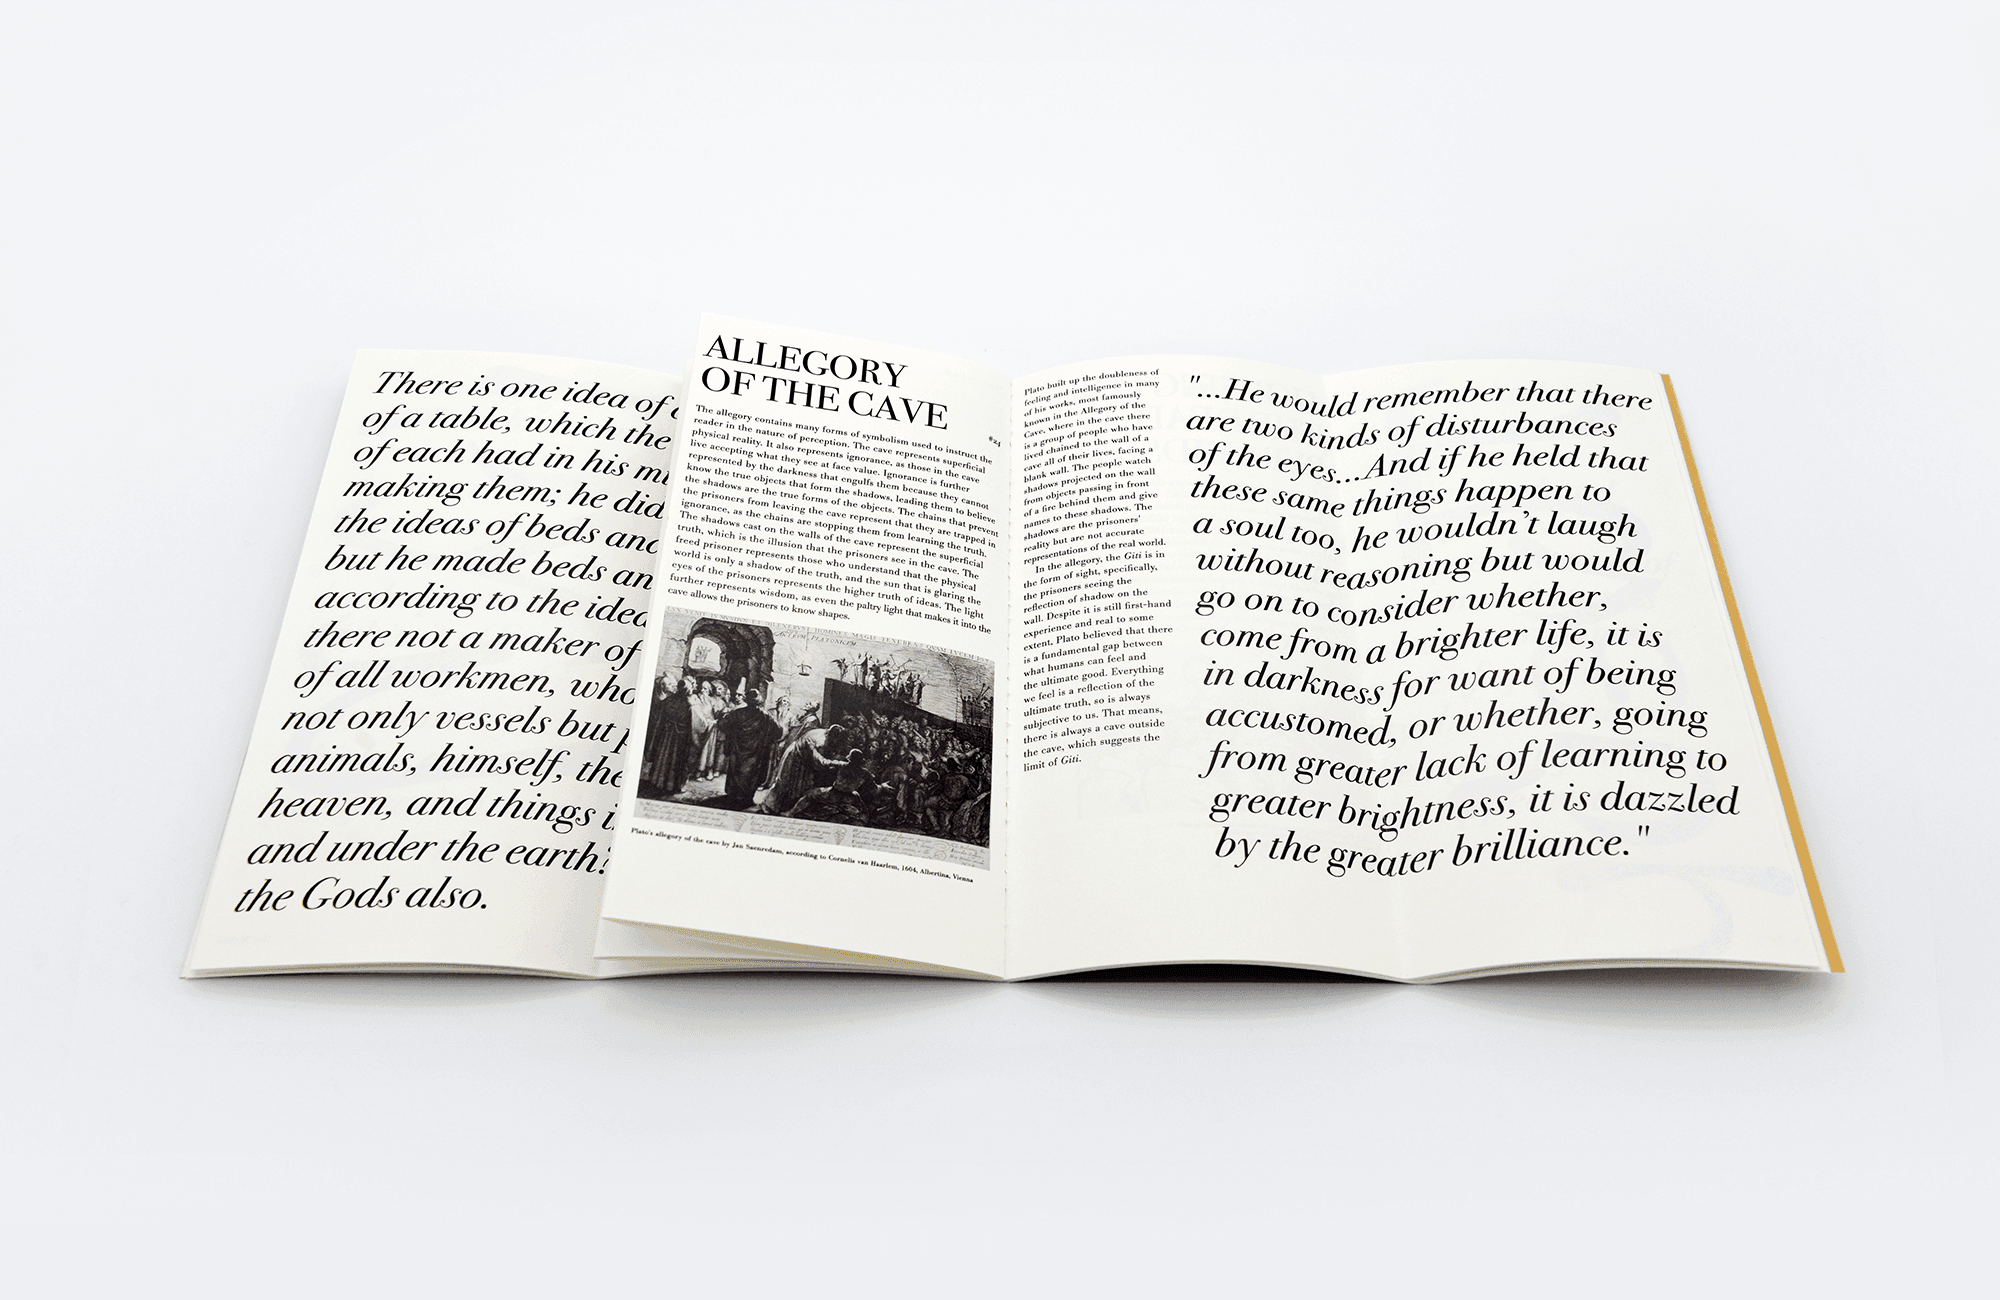 There is one idea of
of a table, which the
of each had in his
making them; he did
the ideas of beds and
but he made beds
according to the idea
there not a maker of
of all workmen, who
not only vessels but
animals, himself, the
heaven, and things
and under the earth?
the Gods also.
ALLEGORY
OF THE CAVE
#24
The allegory contains many forms of symbolism used to instruct the
reader in the nature of perception. The cave represents superficial
physical reality. It also represents ignorance, as those in the cave
live accepting what they see at face value. Ignorance is further
represented by the darkness that engulfs them because they cannot
know the true objects that form the shadows, leading them to believe
the shadows are the true forms of the objects. The chains that prevent
the prisoners from leaving the cave represent that they are trapped in
ignorance, as the chains are stopping them from learning the truth.
The shadows cast on the walls of the cave represent the superficial
truth, which is the illusion that the prisoners see in the cave. The
freed prisoner represents those who understand that the physical
world is only a shadow of the truth, and the sun that is glaring the
eyes of the prisoners represents the higher truth of ideas. The light
further represents wisdom, as even the paltry light that makes it into the
cave allows the prisoners to know shapes.
Plato's allegory of the cave by Jan Saenredam, according to Cornelis van Haarlem, 1604, Albertina, Vienna
Plato built up the doubleness of
feeling and intelligence in many
of his works, most famously
known in the Allegory of the
Cave, where in the cave there
is a group of people who have
lived chained to the wall of a
cave all of their lives, facing a
blank wall. The people watch
shadows projected on the wall
from objects passing in front
of a fire behind them and give
names to these shadows. The
shadows are the prisoners'
reality but are not accurate
representations of the real world.
In the allegory, the Giti is in
the form of sight, specifically,
the prisoners seeing the
reflection of shadow on the
wall. Despite it is still first-hand
experience and real to some
extent, Plato believed that there
is a fundamental gap between
what humans can feel and
the ultimate good. Everything
we feel is a reflection of the
ultimate truth, so is always
subjective to us. That means,
there is always a cave outside
the cave, which suggests the
limit of Giti.
"...He would remember that there
are two kinds of disturbances
of the eyes...And if he held that
these same things happen to
a soul too, he wouldn't laugh
without reasoning but would
go on to consider whether,
come from a brighter life, it is
in darkness for want of being
accustomed, or whether, going
from greater lack of learning to
greater brightness, it is dazzled
by the greater brilliance."